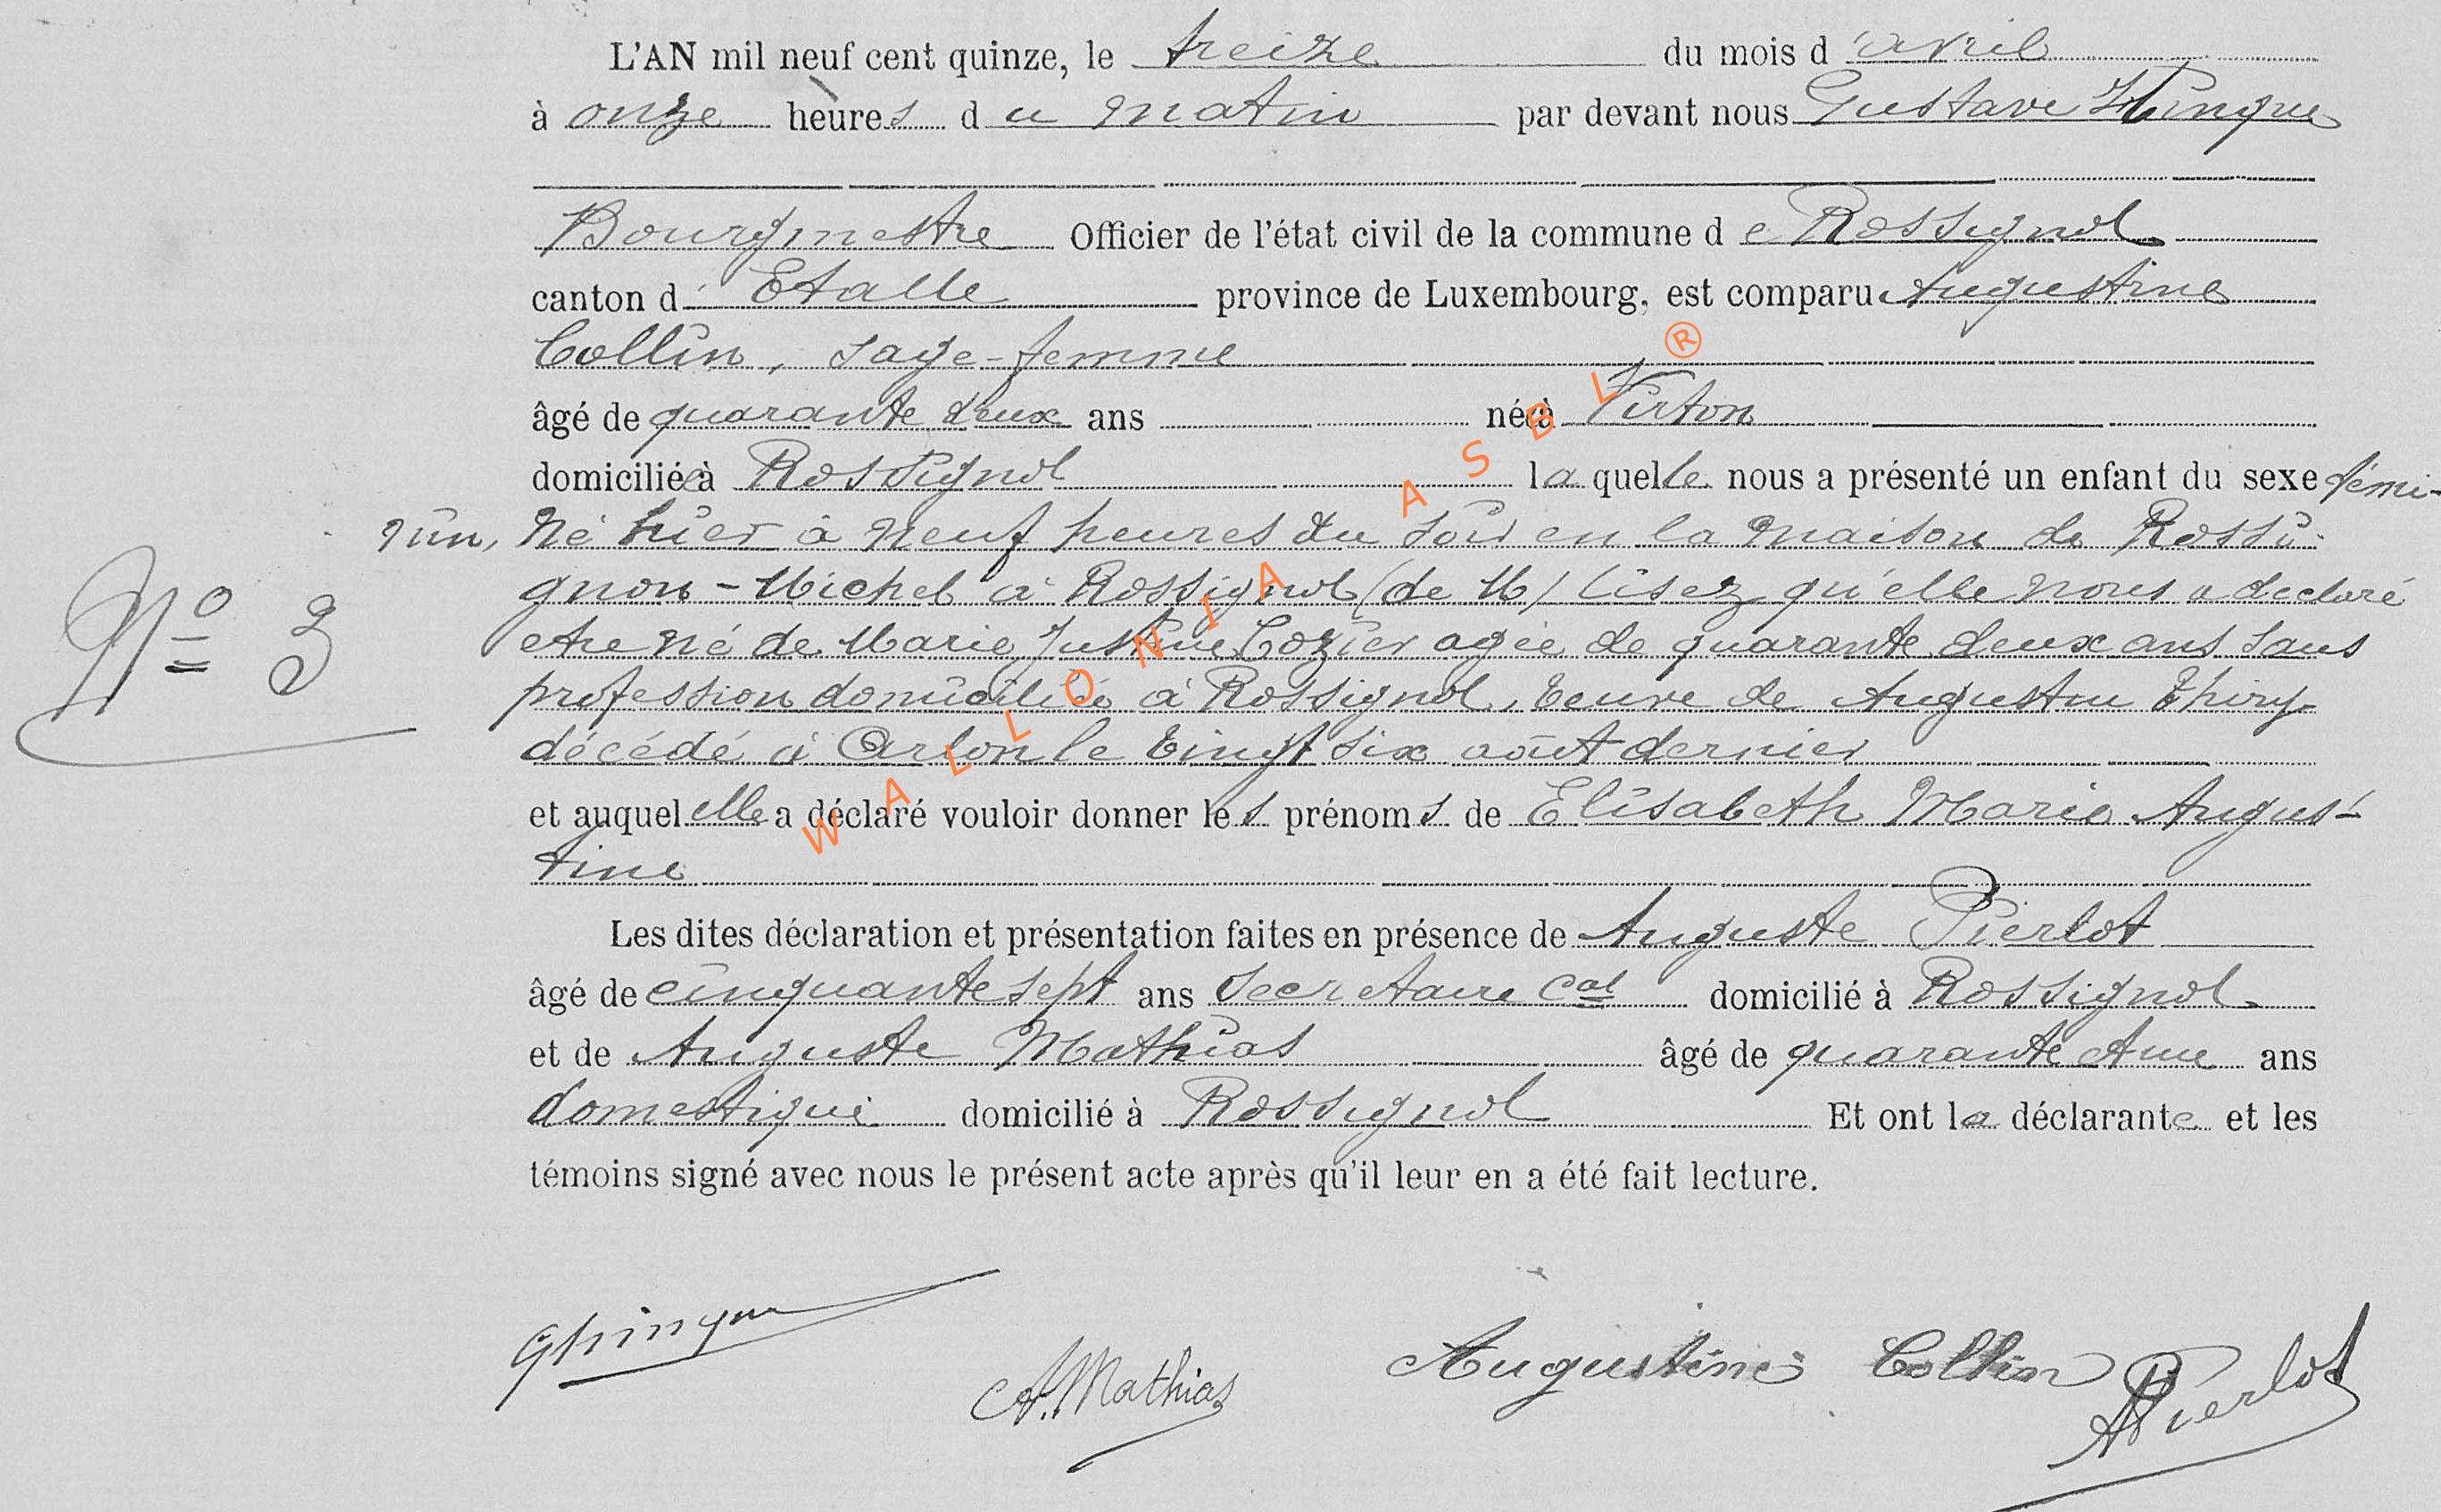 L'AN mil neuf cent quinze, le treize du mois d'avril
à onze heures du matin par devant nous Gustave Hinque
Bourgmestre Officier de l'état civil de la commune de Rossignol
canton d'Etalle province de Luxembourg, est comparu Augustine
Collin, sage-femme
âgé de quarante deux ans née à Virton
domiciliée à Rossignol laquelle nous a présenté un enfant du sexe fémi-
nin, né hier à neuf heures du soir en la maison de Rossi-
gnon-Michel à Rossignol (de M) lisez qu'elle nous a declaré
etre né de Marie Justine Lozier agée de quarante deux ans sans
profession domiciliée à Rossignol, veuve de Augustin Thiry
décédé à Arlon le vingt six août dernier
et auquel elle a déclaré vouloir donner les prénoms de Elisabeth Marie Augus-
tine
N° 3
Les dites déclaration et présentation faites en présence de Auguste Pierlot
âgé de cinquante sept ans Secretaire Cal domicilié à Rossignol
et de Auguste Mathias âgé de quarante et une ans
domestique domicilié à Rossignol Et ont la déclarante et les
témoins signé avec nous le présent acte après qu'il leur en a été fait lecture.
Ghinque
A. Mathias
Augustine Collin
A Pierlot
WALLONIA ASBL ®